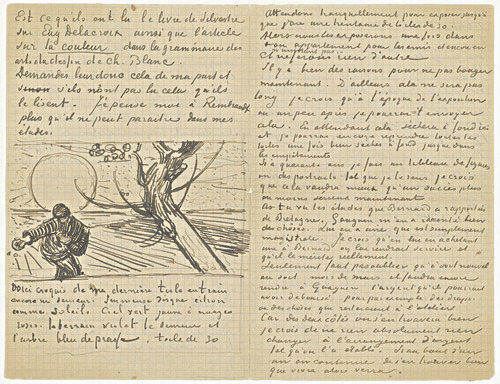 Est ce qu'ils ont lu le livre de Silvestre
sur Eug Delacroix ainsi que l'article
sur la couleur dans la grammaire des
arts du dessin de Ch. Blanc.
Demandez leur donc cela de ma part et
sinon s'ils n'ont pas lu cela qu'ils
le lisent. J'epense moi à Rembrandt
plus qu'il ne peut paraître dans mes
études.
Voici croquis de ma dernière toile en train
encore un semeur. Immense disque citron
comme soleil. Ciel vert jaune à nuages
roses. le terrain violet le semeur et
l'arbre bleu de prusse. toile de 30
Attendons tranquillement pour exposer jusqu'à
que j'aie une trentaine de toiles de 30.
Alors nous les exposerons une fois dans
ton appartement pour les amis et encore en
Et ne ferons rien d'autre
Il y a bien des raisons pour ne pas bouger
maintenant. D'ailleurs cela ne sera pas
long je crois qu'à l'époque de l'exposition
ou un peu après je pourrai t'envoyer
cela. En attendant cela séchera à fond ici
et je pourrai encore reprendre toutes les
toiles une fois bien sèches à fond jusque dans
les empâtements
Si à quarante ans je fais un tableau de figures
ou des portraits tel que je le sens je crois
que cela vaudra mieux qu'un succès plus
ou moins serieux maintenant.
As tu vu les études que Bernard a rapportées
de Bretagne, Gauguin m'en a raconté bien
des choses. Lui en a une qui est simplement
magistrale. Je crois qu'en lui en achetant
une à Bernard on lui rendrait service et
qu'il le mérite réellement.
Seulement faut pas oublier qu'à voir nouvel
au soit mois de mars et faudra encore
rendre à Gauguin l'argent qu'il pourrait
avoir déboursé pour par exemple des draps
ou des choses qui resteront à l'atelier
Car des deux côtés on s'en trouvera bien
je crois de ne rien absolument rien
changer à l'arrangement d'argent
tel qu'on l'a établi. Si au bout d'un
an on continue de s'en trouver bien
que vivra alors verra.